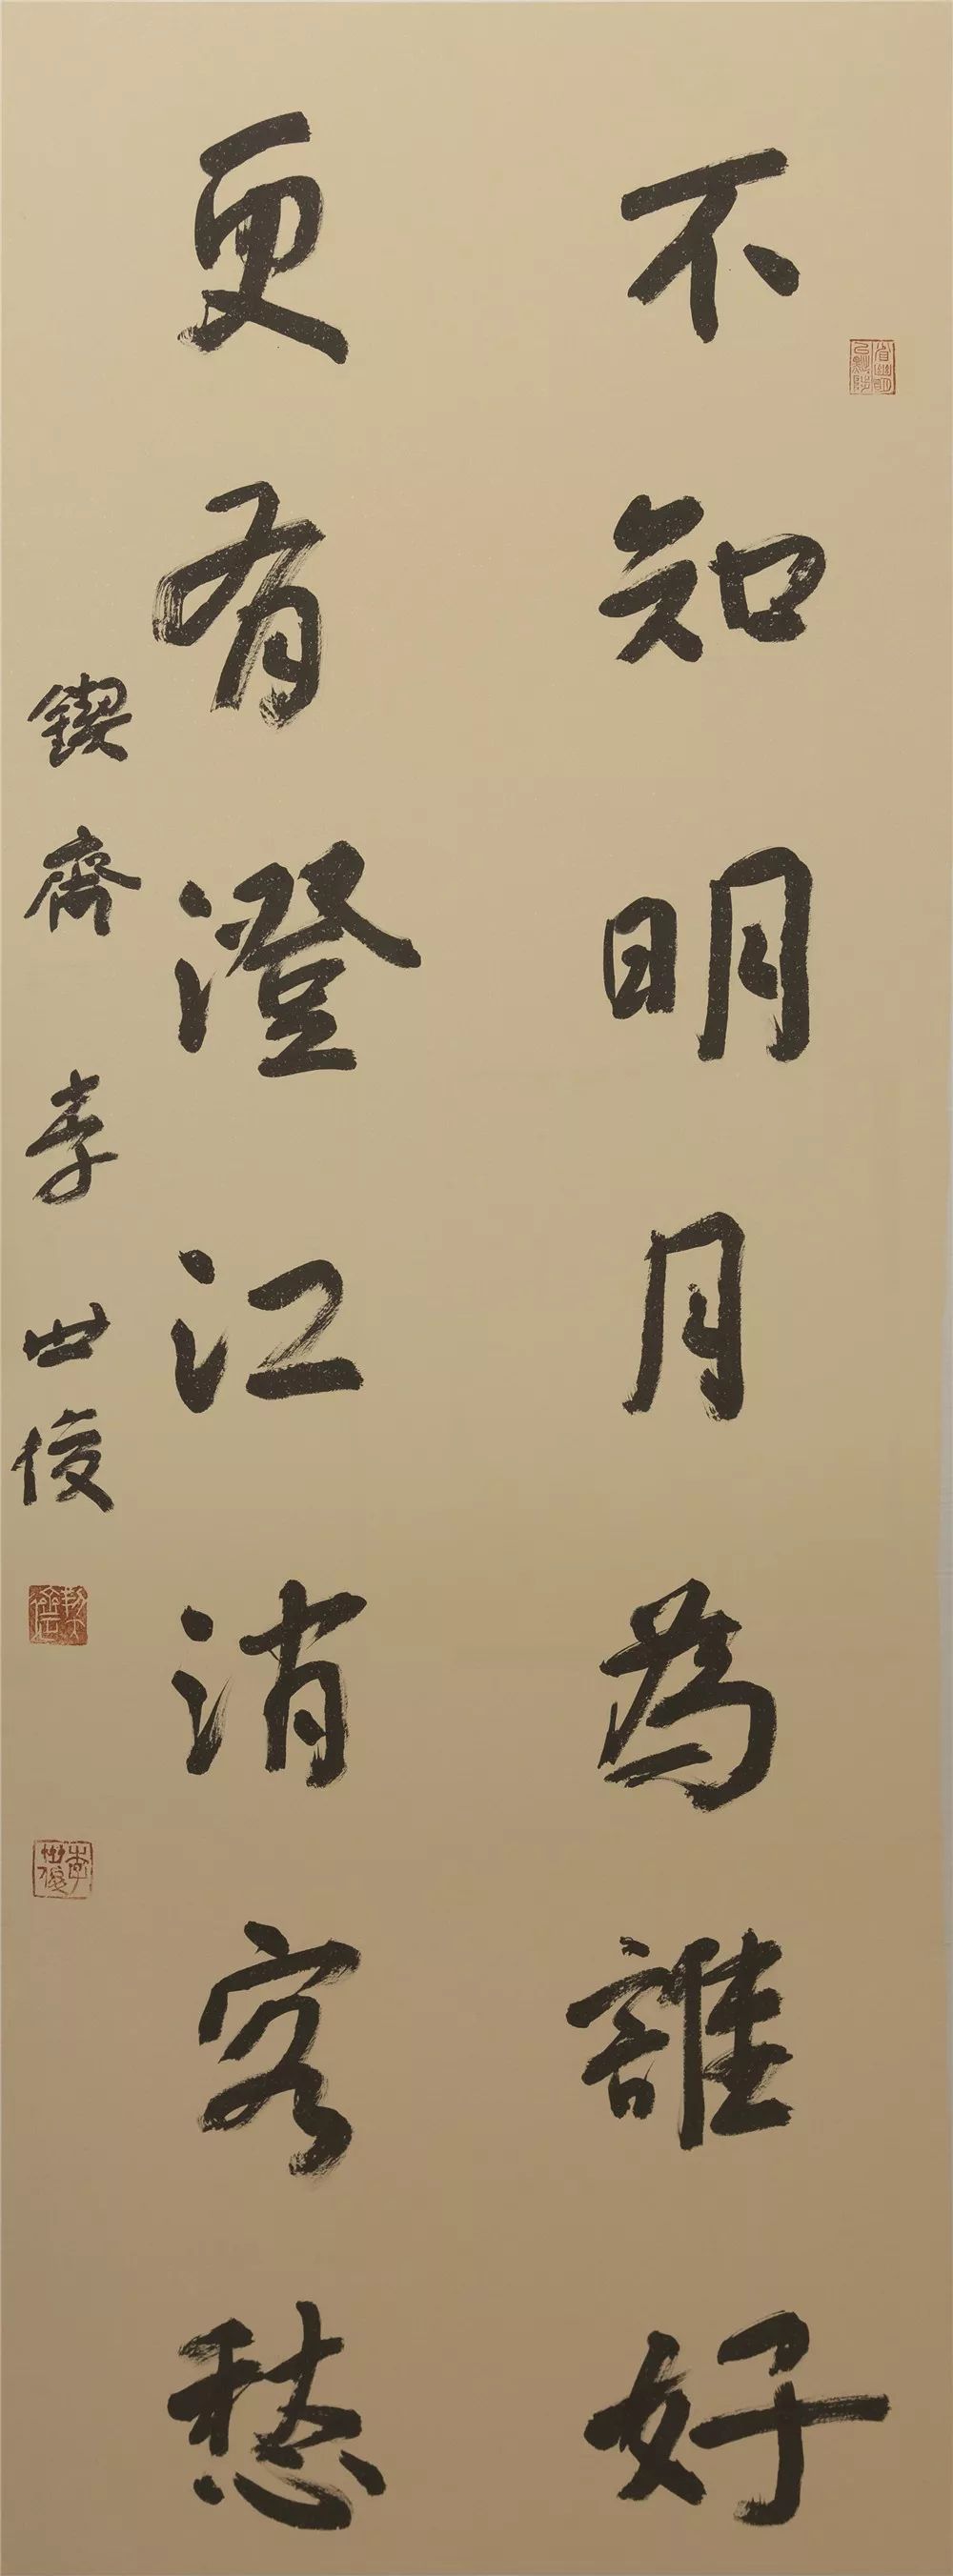 不知明月为誰好
更有澄江消客愁
鍥齋李世俊
李世俊